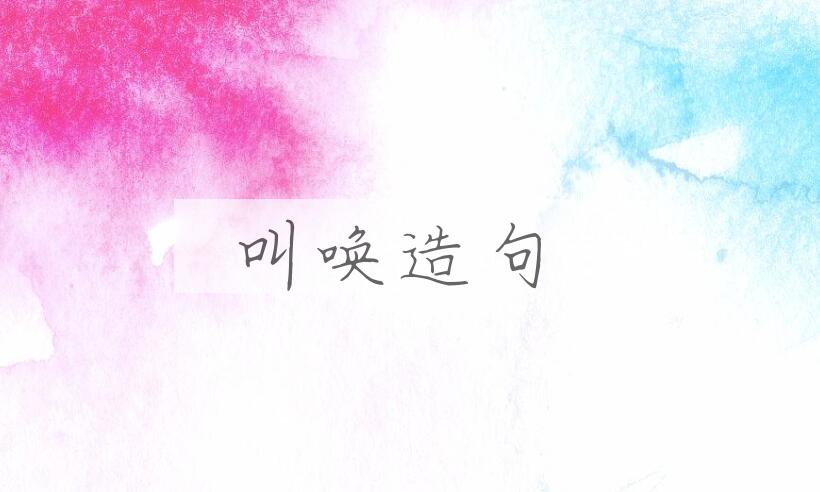 叫唤造句